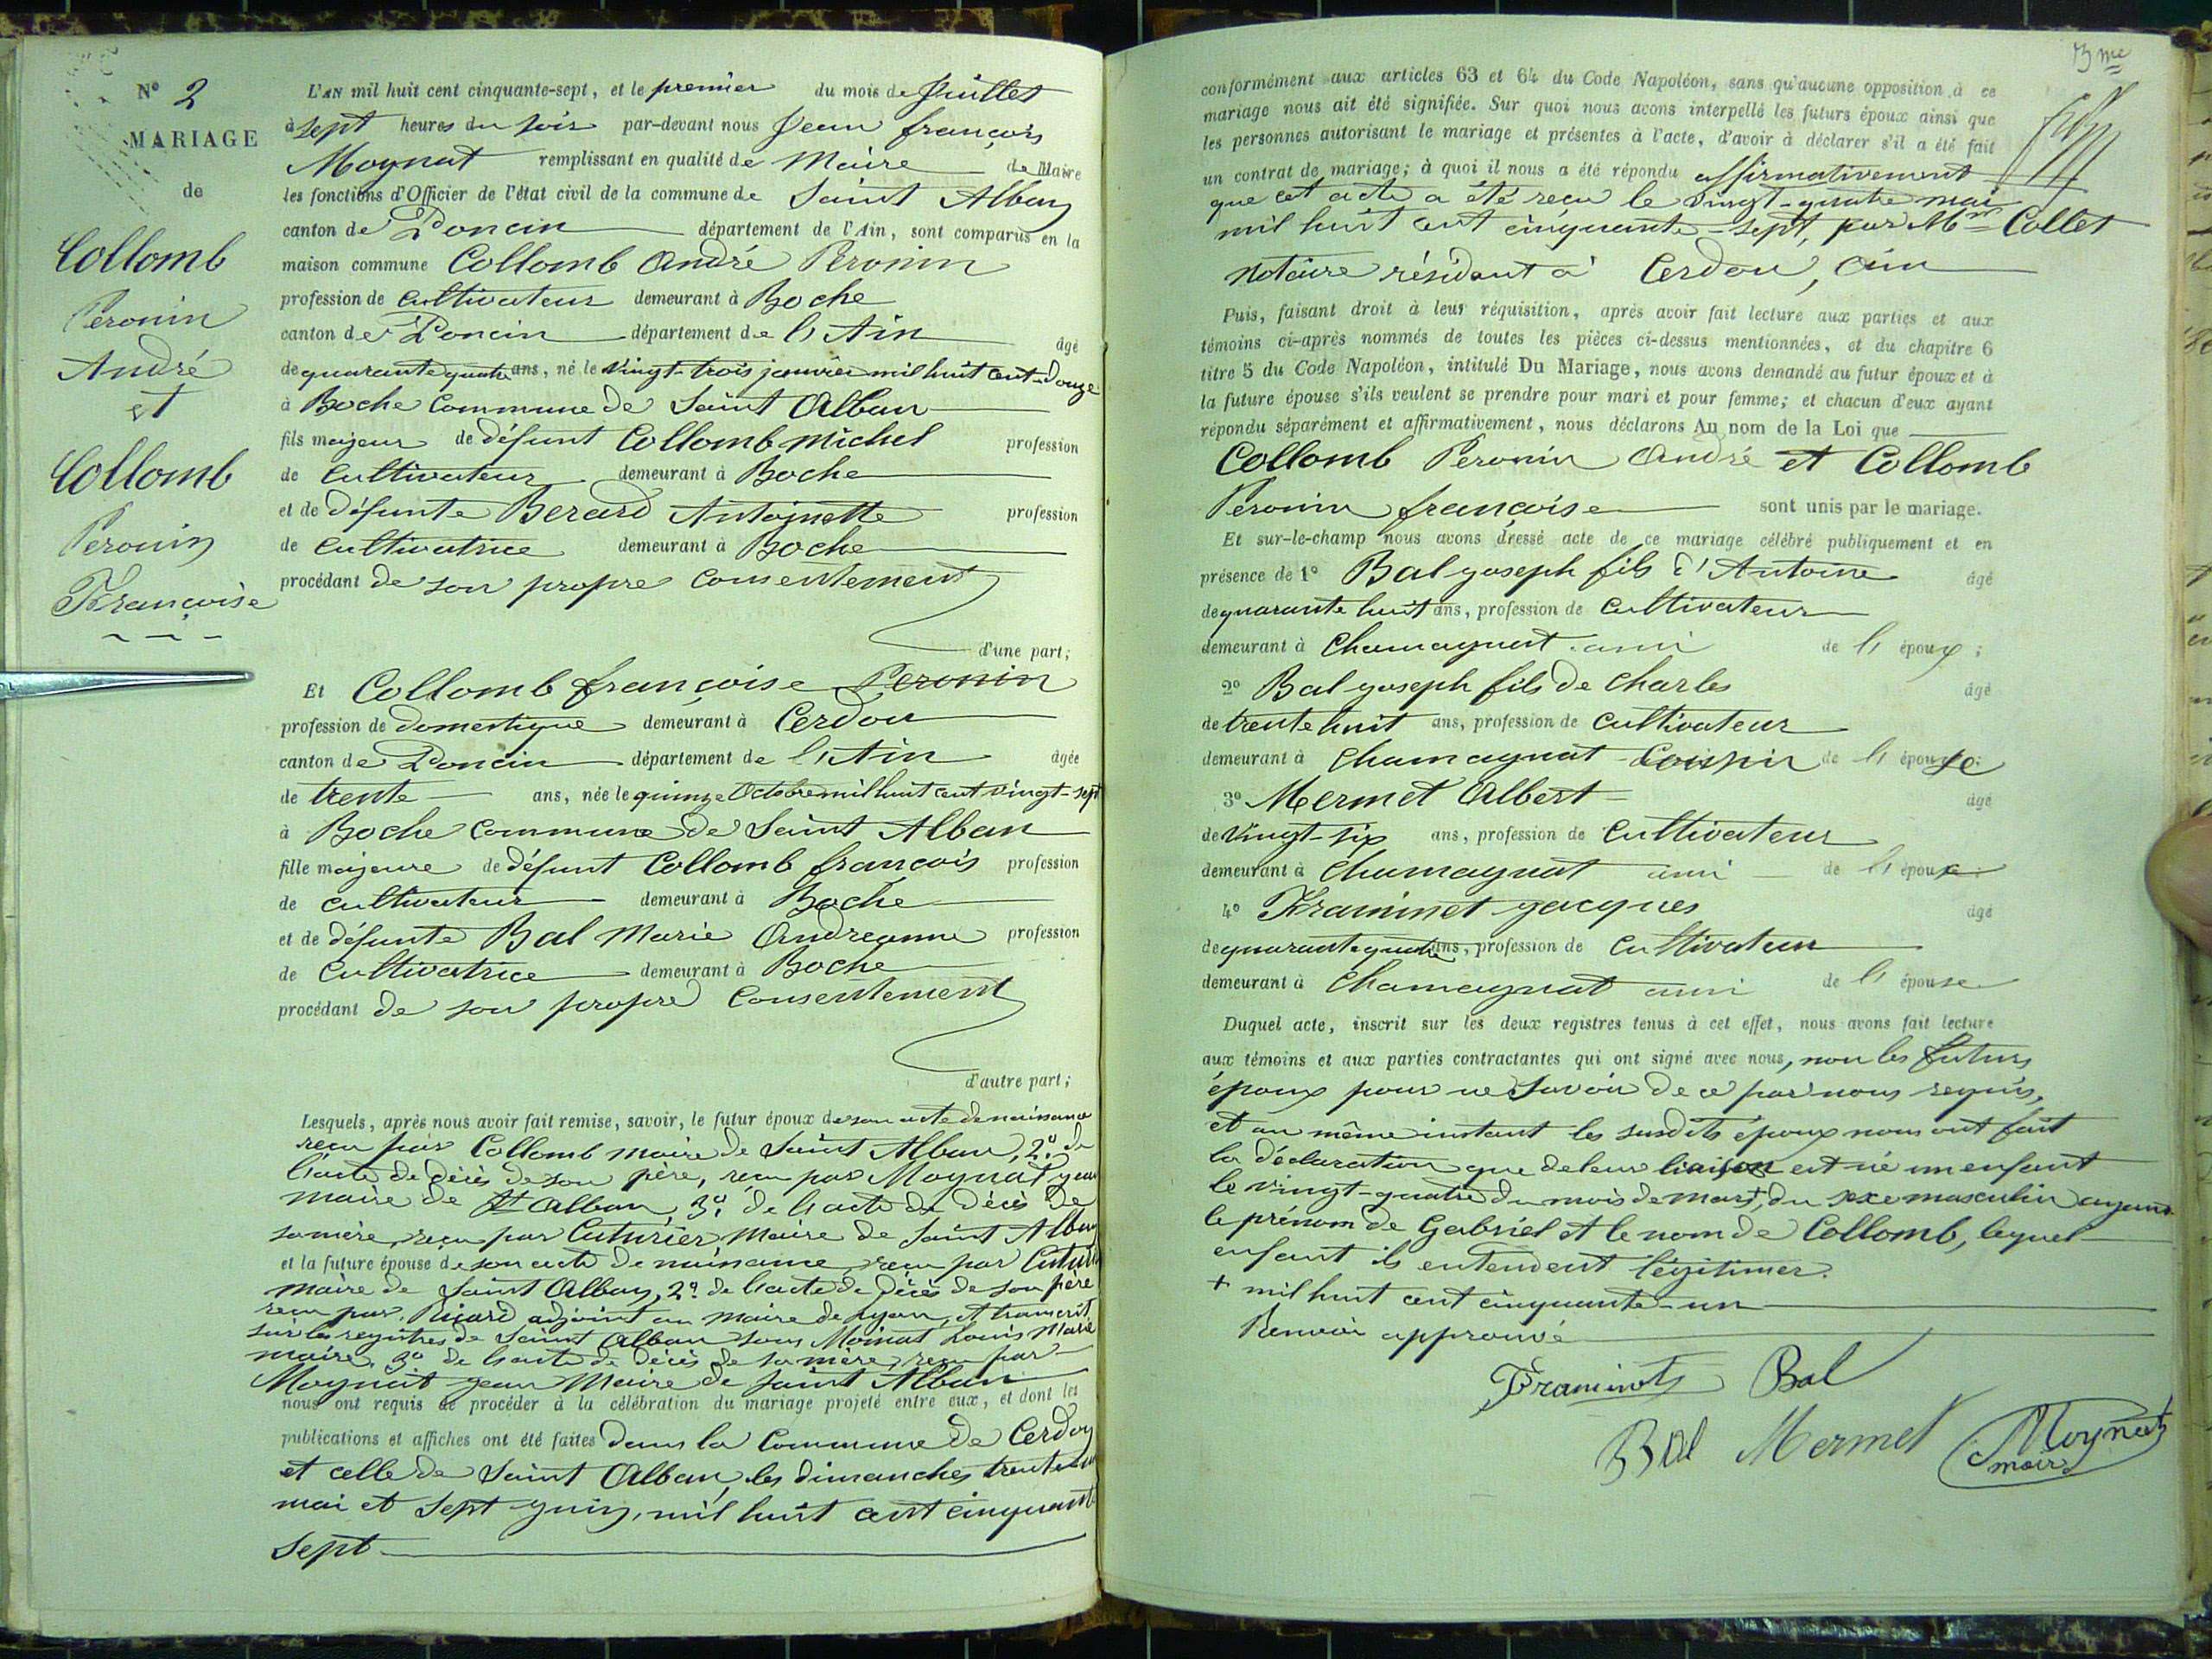 N° 2
MARIAGE
de
Collomb
Peronin
André
et
Collomb
Peronin
Françoise
L'AN mil huit cent cinquante-sept, et le premier du mois de Juillet
à sept heures du soir par-devant nous Jean françois
Moynat remplissant en qualité de Maire de Maire
les fonctions d'Officier de l'état civil de la commune de Saint Alban
canton de Poncin département de l'Ain, sont comparus en la
maison commune Collomb André Peronin
profession de Cultivateur demeurant à Boche
canton de Poncin département de l'Ain âgé
de quarante quatre ans, né le vingt-trois janvier mil huit cent-douze
à Boche Commune de Saint Alban
fils majeur de défunt Collomb Michel profession
de Cultivateur demeurant à Boche
et de défunte Berard Antoinette profession
de Cultivatrice demeurant à Boche
procédant de son propre Consentement
d'une part;
Et Collomb françoise Peronin
profession de domestique demeurant à Cerdon
canton de Poncin département de l'Ain âgée
de trente ans, née le quinze Octobre mil huit cent vingt-sept
à Boche Commune de Saint Alban
fille majeure de défunt Collomb françois profession
de cultivateur demeurant à Boche
et de défunte Bal Marie Andreanne profession
de Cultivatrice demeurant à Boche
procédant de son propre Consentement
d'autre part;
Lesquels, après nous avoir fait remise, savoir, le futur époux de son acte de naissance
reçu par Collomb maire de Saint Alban, 2° de
l'acte de décès de son père, reçu par Moynat jean
maire de St Alban 3° de l'acte de décès de
sa mère, reçu par Cuturier Maire de Saint Alban
et la future épouse de son acte de naissance, reçu par
maire de Saint Alban, 2° de l'acte de décès de son père
reçu par Ricard adjoint au maire de Lyon, et transcrit
sur les registres de Saint Alban sous Moinat Louis Marie
maire, 3° de l'acte de décès de sa mère, reçu par
Moynat jean Maire de Saint Alban
nous ont requis de procéder à la célébration du mariage projeté entre eux, et dont les
publications et affiches ont été faites dans la Commune de Cerdon
et celle de Saint Alban, les dimanches trente un
mai et sept juin, mil huit cent cinquante
sept
conformément aux articles 63 et 64 du Code Napoléon, sans qu'aucune opposition à ce
mariage nous ait été signifiée. Sur quoi nous avons interpellé les futurs époux ainsi que
les personnes autorisant le mariage et présentes à l'acte, d'avoir à déclarer s'il a été fait
un contrat de mariage; à quoi il nous a été répondu affirmativement
que cet acte a été reçu le vingt-quatre mai
mil huit cent cinquante-sept, par Collet
notaire résidant à Cerdon, Ain
Puis, faisant droit à leur réquisition, après avoir fait lecture aux parties et aux
témoins ci-après nommés de toutes les pièces ci-dessus mentionnées, et du chapitre 6
titre 5 du Code Napoléon, intitulé Du Mariage, nous avons demandé au futur époux et à
la future épouse s'ils veulent se prendre pour mari et pour femme; et chacun d'eux ayant
répondu séparément et affirmativement, nous déclarons Au nom de la Loi que
Collomb Peronin André et Collomb
Peronin françoise sont unis par le mariage.
Et sur-le-champ nous avons dressé acte de ce mariage célébré publiquement et en
présence de 1° Bal joseph fils d'Antoine âgé
de quarante huit ans, profession de Cultivateur
demeurant à Chamagnat ami de l'époux;
2° Bal joseph fils de Charles âgé
de trente huit ans, profession de cultivateur
demeurant à Chamagnat Cousin de l'épouse;
3° Mermet Albert âgé
de vingt-six ans, profession de Cultivateur
demeurant à Chamagnat ami de l'épouse
4° Framinet jacques âgé
de quarante quatre ans, profession de Cultivateur
demeurant à Chamagnat ami de l'épouse
Duquel acte, inscrit sur les deux registres tenus à cet effet, nous avons fait lecture
aux témoins et aux parties contractantes qui ont signé avec nous, non les futurs
époux pour ne savoir de ce par nous requis,
et au même instant les susdits époux nous ont fait
la déclaration que de leur liaison est né un enfant
le vingt-quatre du mois de mars, + du sexe masculin ayant
le prénom de Gabriel et le nom de Collomb, lequel
enfant ils entendent légitimer.
+ mil huit cent cinquante-un
Renvoi approuvé
Framinet Bal
Bal Mermet Moynat
maire